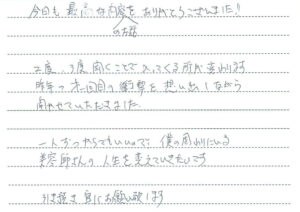 今日も最高な内容をありがとうございました!
のお話
2度、3度聞くことで入ってくる所が変わります
昨年の第一回目の衝撃を想い出しながら
聞かせていただきました
一人ずつからでもいいので、僕の周りにいる
美容師さんの人生を変えていきたいです
引き続き宜しくお願い致します